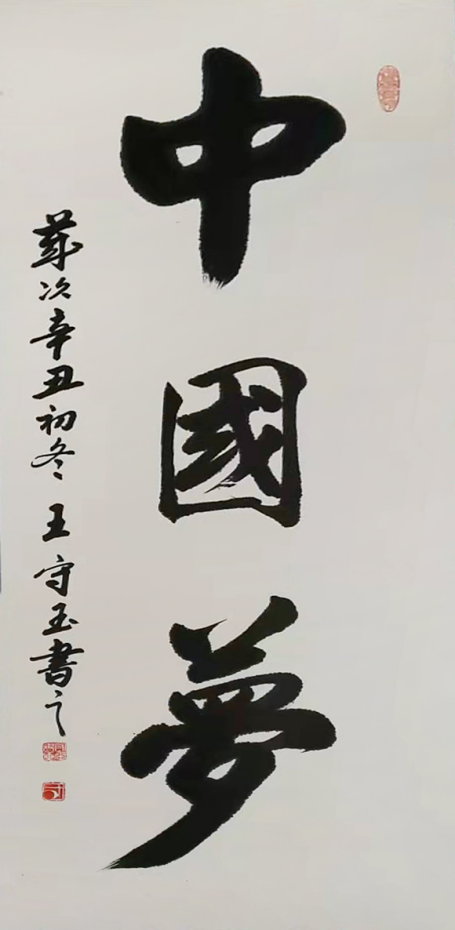 中國夢
歲次辛丑初冬 王守玉書之